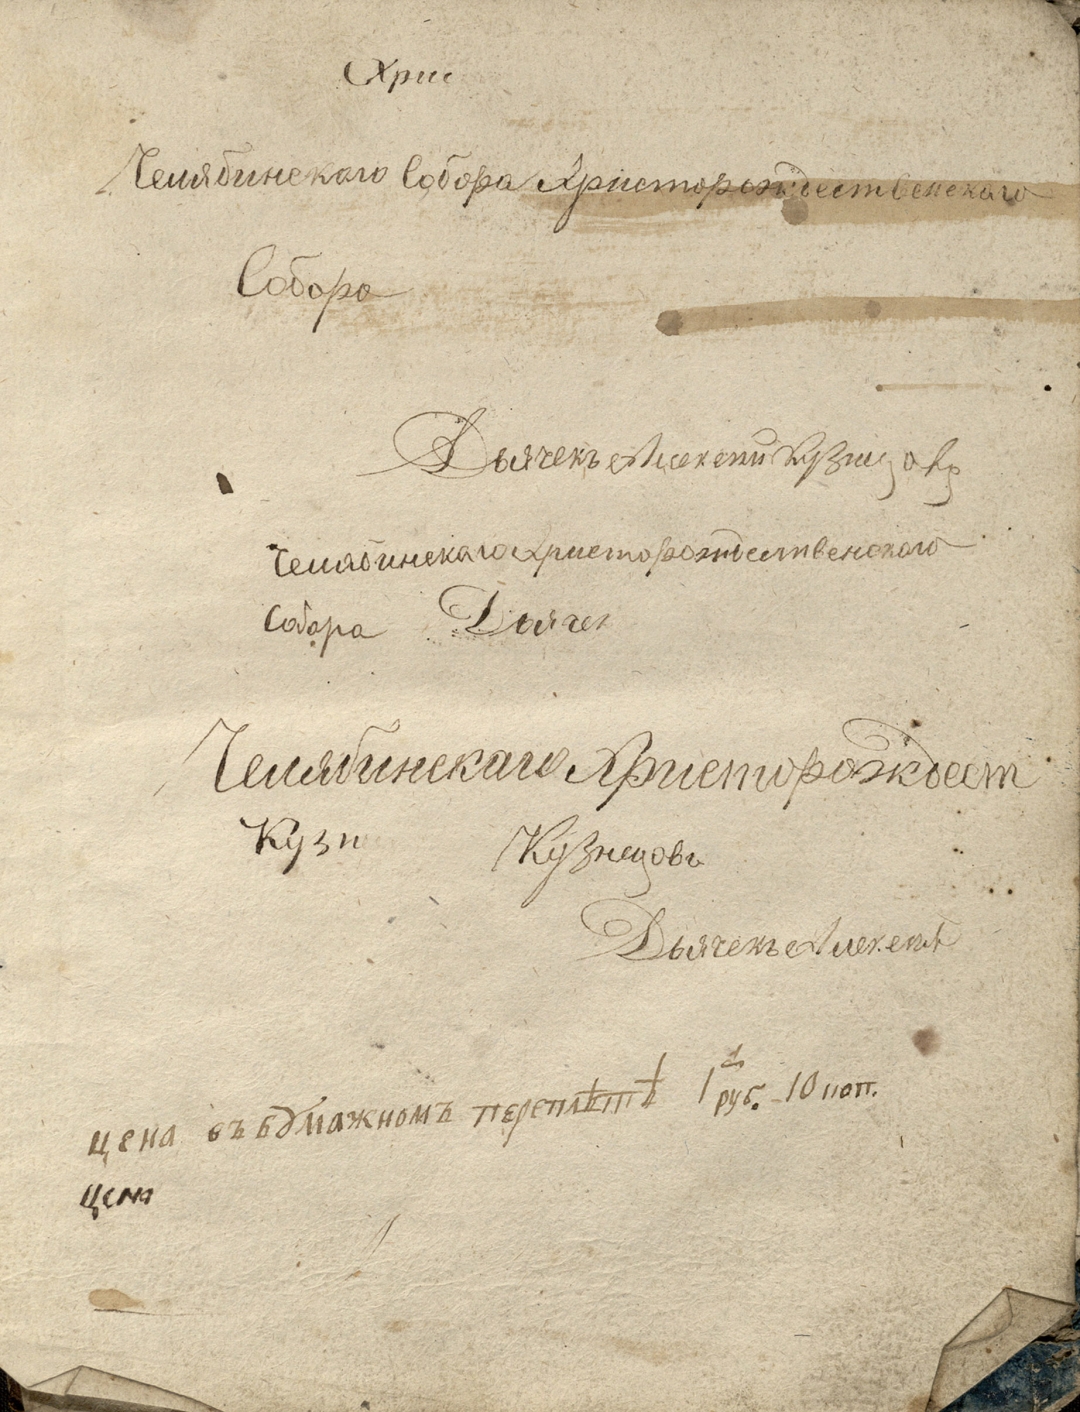 Хрис
Челябинскаго Собора Христорождественскаго
Собора
Дьячекъ Алексей Кузнецовъ
Челябинскаго Христорождественскаго
Собора Дьячек
Челябинскаго Христорождест
Кузн Кузнецовъ
Дьячекъ Алексей
цена въ бумажномъ переплѣтѣ 1 руб. 10 коп.
Цена